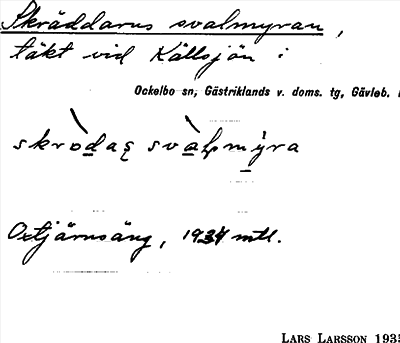 Skräddarns svalmyran,
täkt vid Källsjön i
Ockelbo sn, Gästriklands v. doms. tg, Gävleb.
Oxtjärnsäng, 1934 mtl.
LARS LARSSON 1935